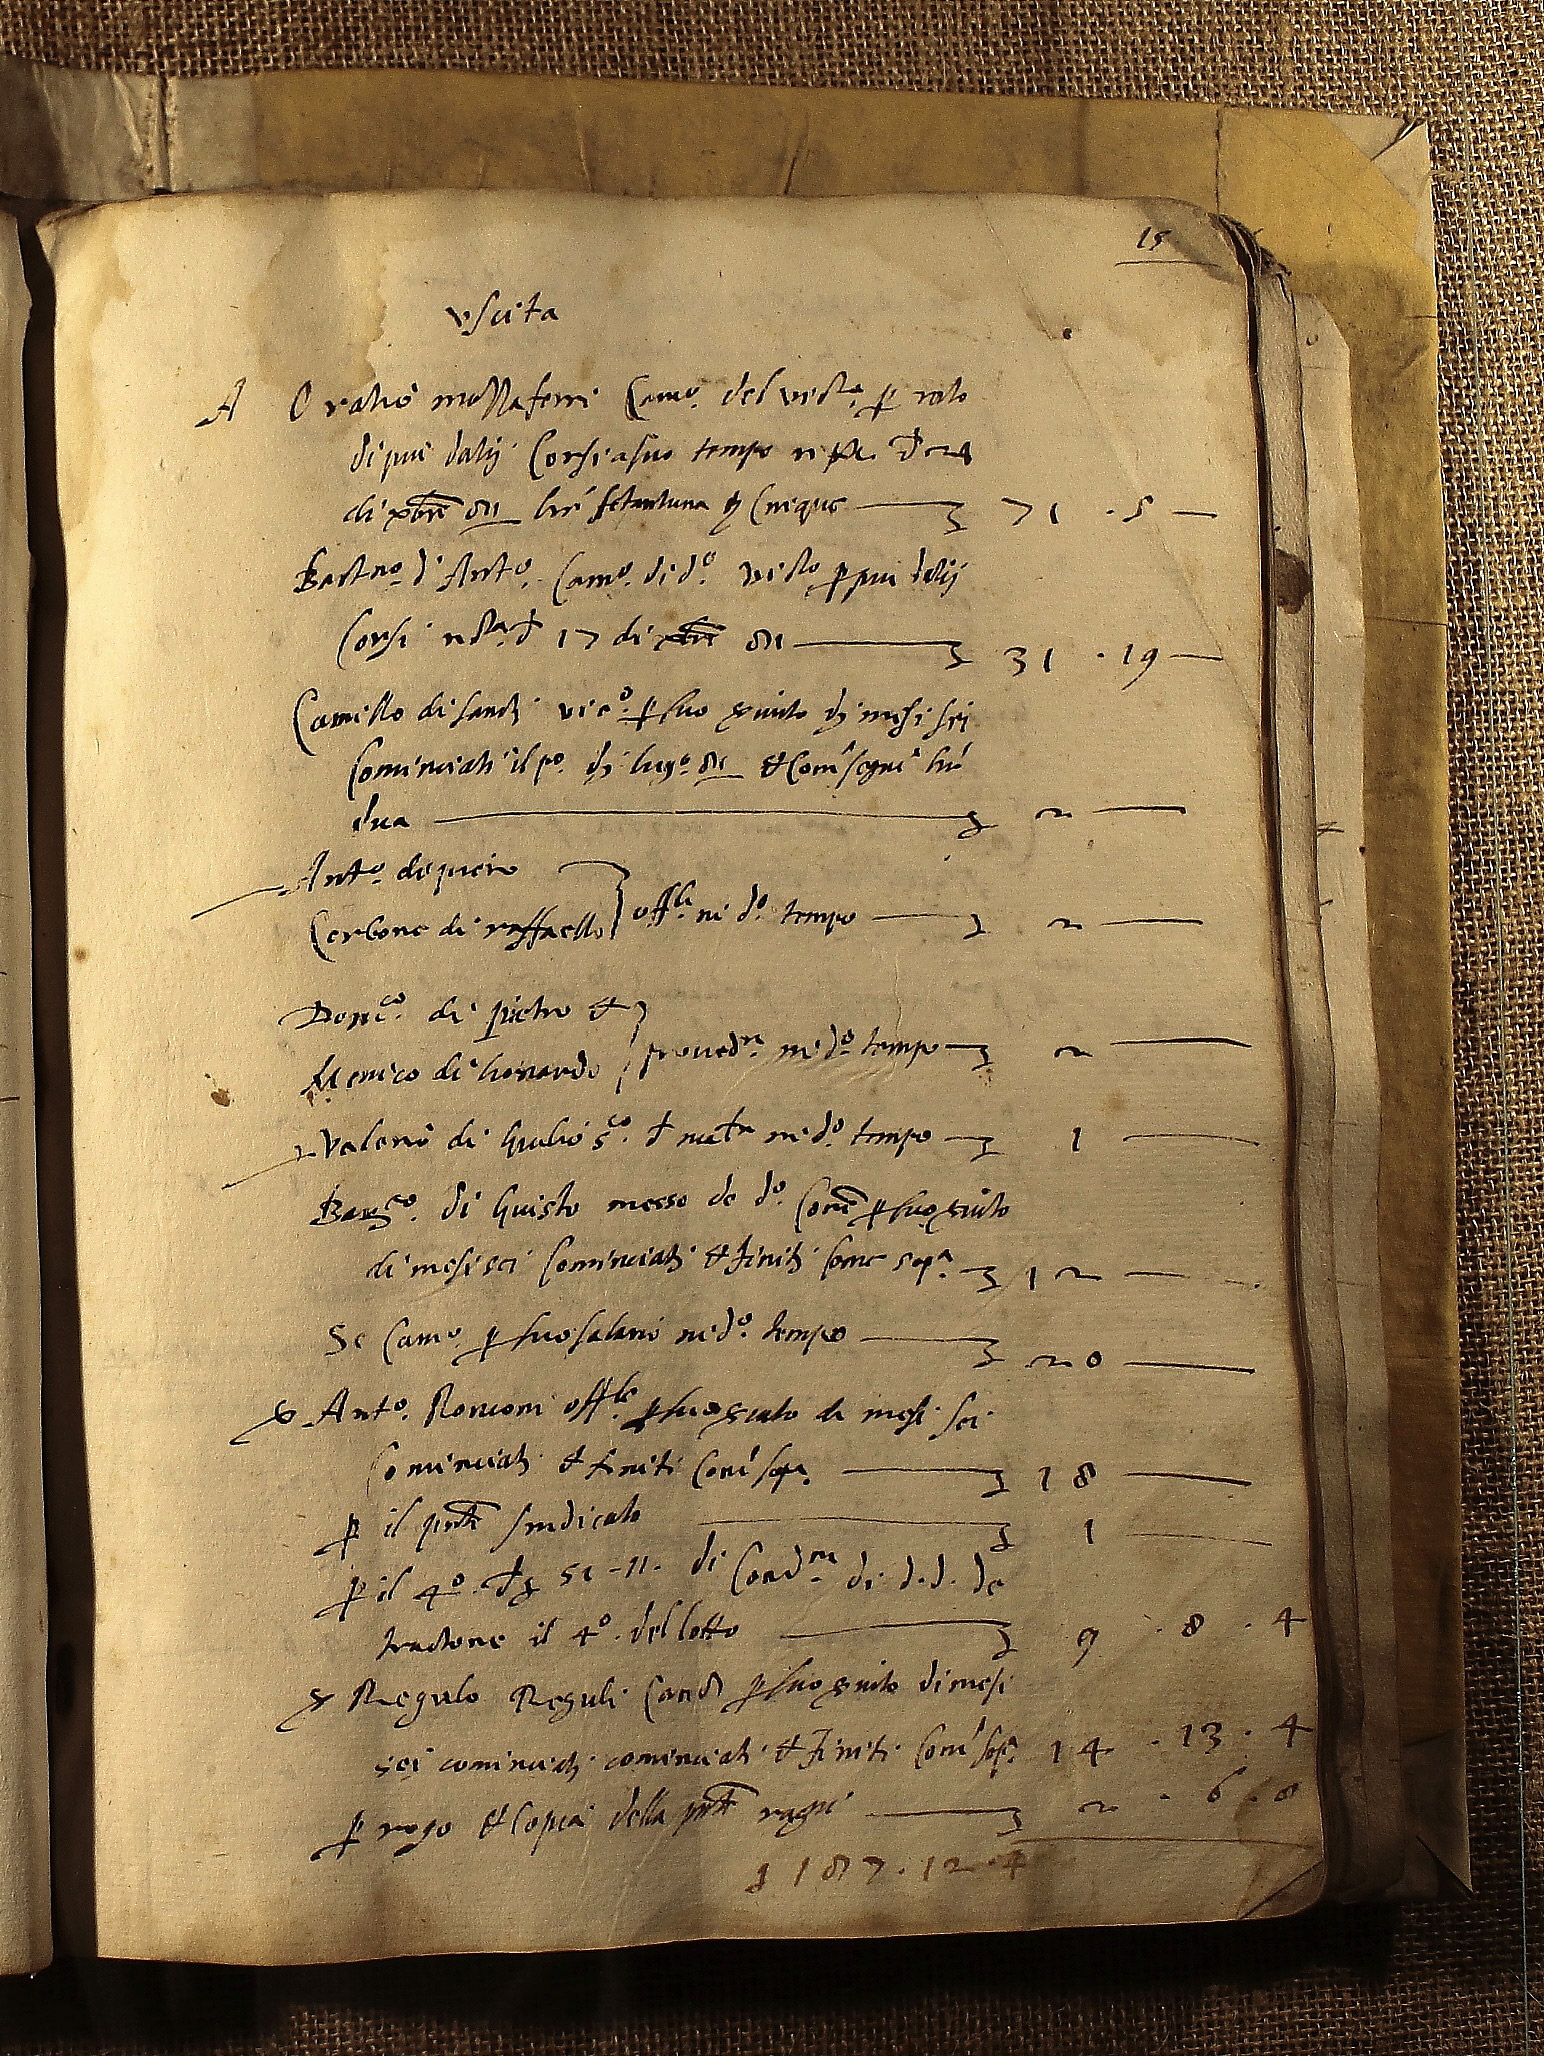 15
uscita
A Oratio mastaferri Camo. del visto. p rato
di piu datij Corsi a suo tempo
di xbre 81 lire settantuna e cinque — 71 . 5 —
Bastno. d'Anto. Camo. di do. visto p piu datij
Corsi 17 di xbre 81 — 31 . 19 —
Camillo di Santi vico. p suo servito di mesi sei
Cominciati il po. di lugo. 81 et Come segue lire
dua — 2 —
Anto. di piero
Cerbone di raffaello offli. ne do. tempo — 2 —
Domco. di pietro et
Menico di lionardo provedri. ne do. tempo — 2 —
Valerio di Giulio ne do. tempo — 1 —
di Giusto messo de do. Come. p suo servito
di mesi sei Cominciati et finiti Come sopa. — 12 —
Se Camo. p suo salario ne do. tempo — 20 —
Anto. Ronconi offle. p suo servito di mesi sei
Cominciati et finiti Come sopa. — 18 —
p il pnte sindicato — 1 —
p il 4o. di 51 - 11 . di Condni. di d. d. de
tractone il 4o. del lotto — 9 . 8 . 4
Regulo Reguli p suo servito di mesi
sei cominciati cominciati et finiti Come sopa. 14 . 13 . 4
p rogo et Copia della pnte ragne — 2 . 6 . 8
187 . 12 . 4